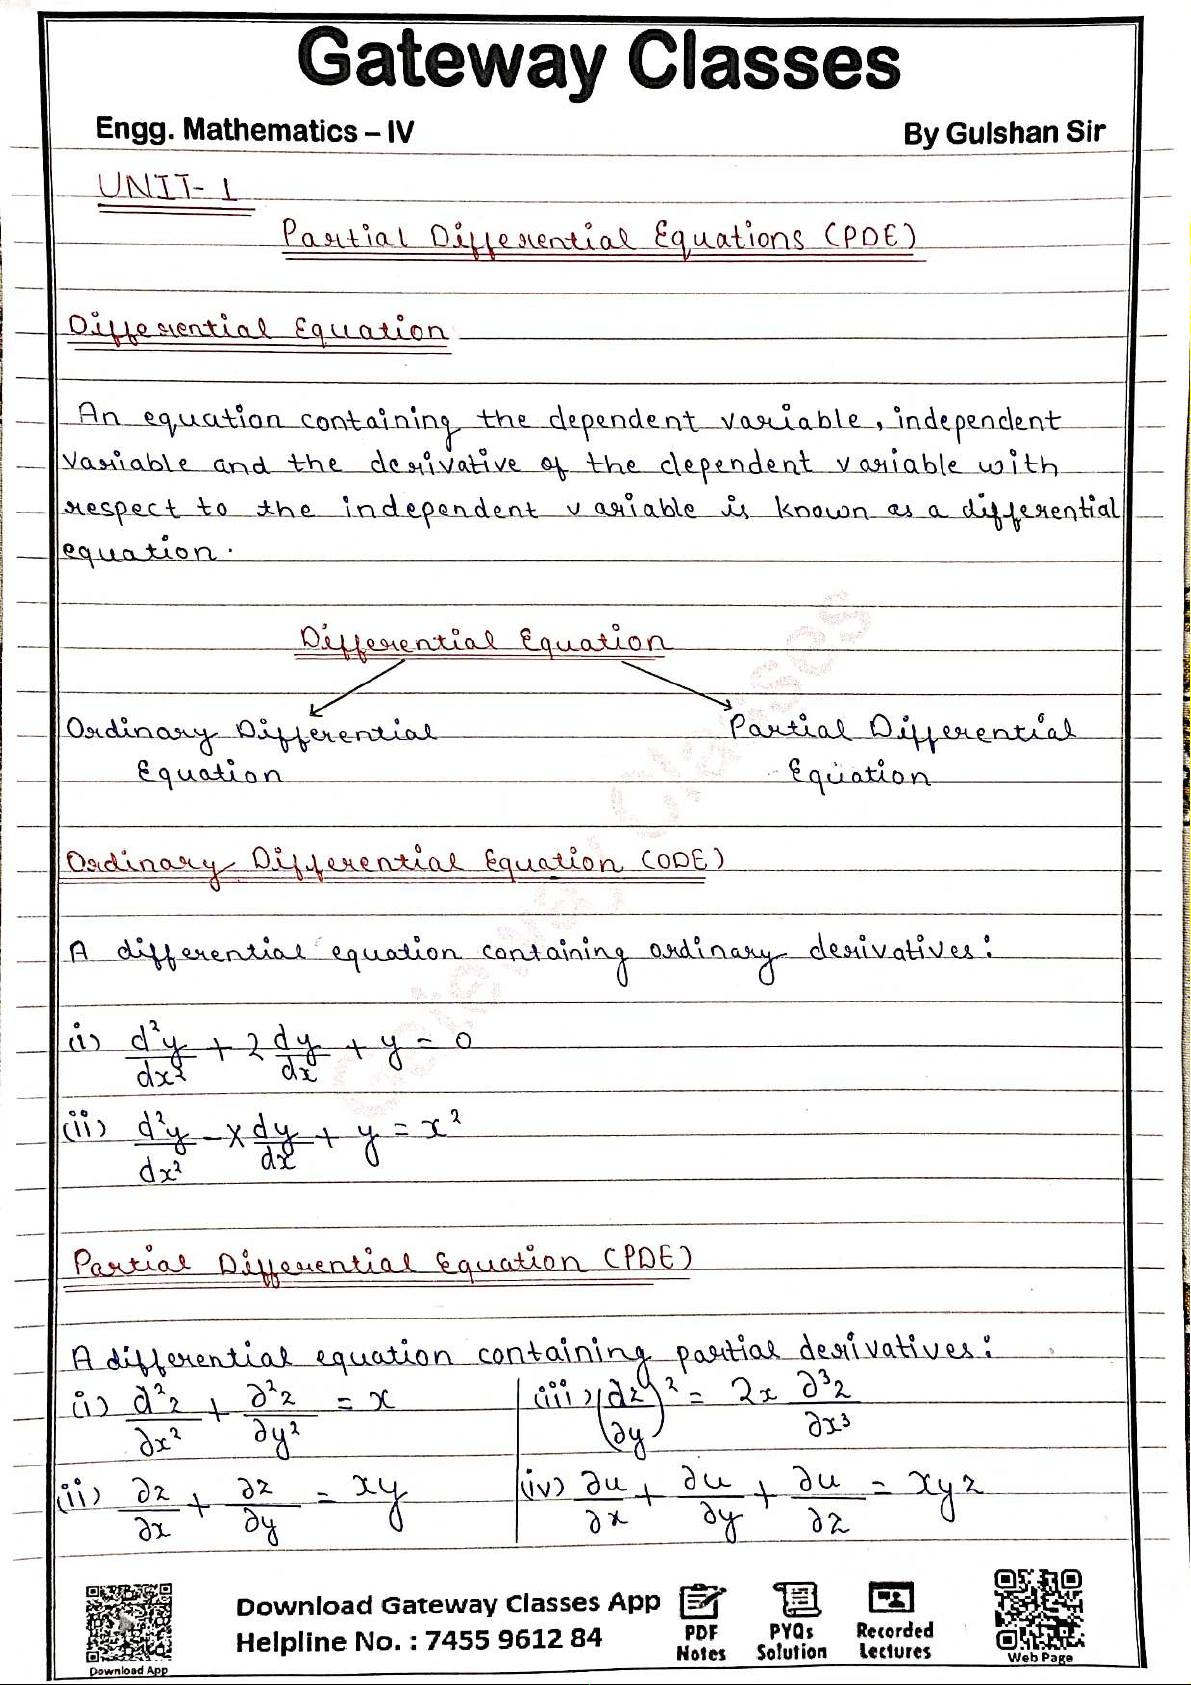 Gateway Classes
Engg. Mathematics – IV By Gulshan Sir
UNIT-1
Partial Differential Equations (PDE)
Differential Equation
An equation containing the dependent variable, independent
variable and the derivative of the dependent variable with
respect to the independent variable is known as a differential
equation.
Differential Equation
Ordinary Differential Equation
Partial Differential Equation
Ordinary Differential Equation (ODE)
A differential equation containing ordinary derivatives:
(i) d²y/dx² + 2 dy/dx + y = 0
(ii) d²y/dx² - x dy/dx + y = x²
Partial Differential Equation (PDE)
A differential equation containing partial derivatives:
(i) ∂²z/∂x² + ∂²z/∂y² = x
(ii) ∂z/∂x + ∂z/∂y = xy
(iii) (∂z/∂y)² = 2x ∂³z/∂x³
(iv) ∂u/∂x + ∂u/∂y + ∂u/∂z = xyz
Gateway Classes
Download App
Download Gateway Classes App
Helpline No. : 7455 9612 84
PDF Notes
PYQs Solution
Recorded Lectures
Web Page